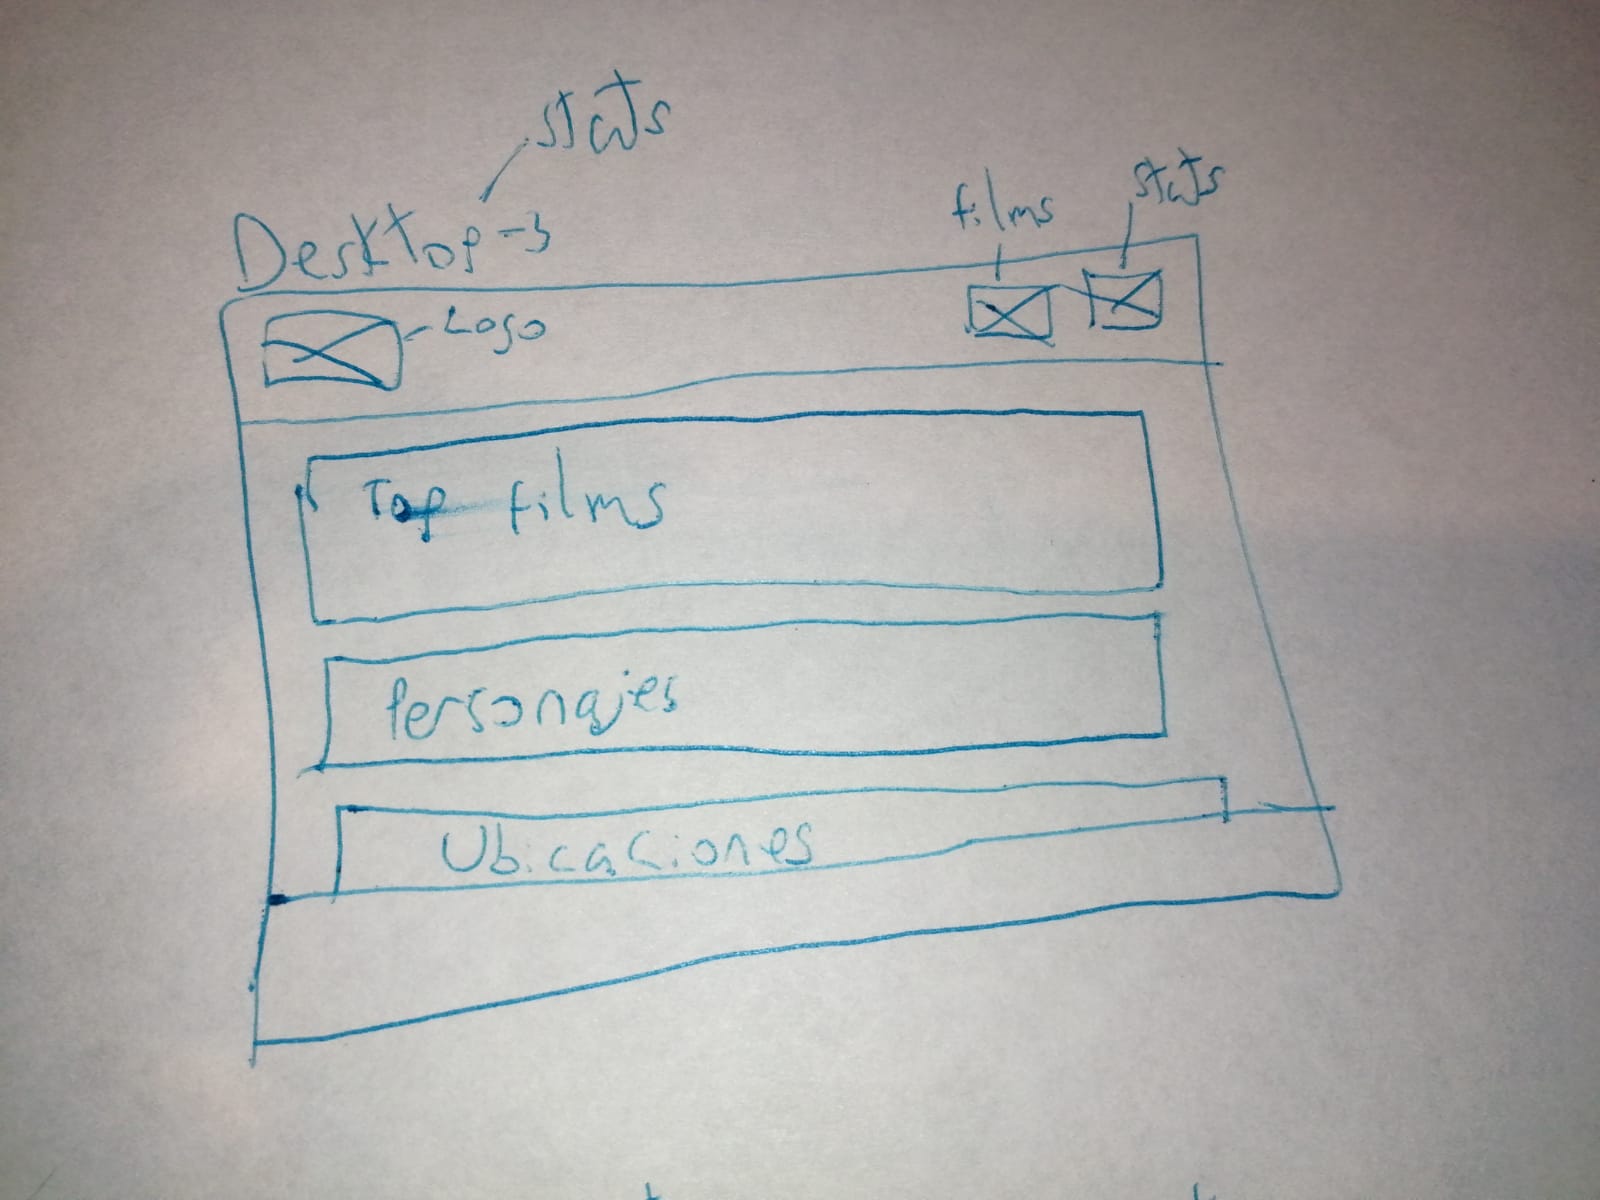 stats
Desktop-3
films
stats
Logo
Top films
Personajes
Ubicaciones